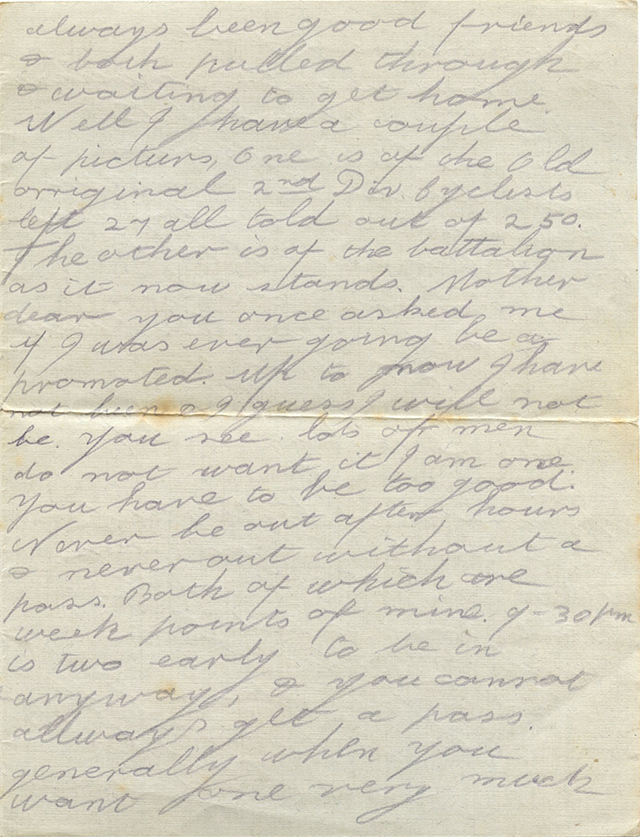 always been good friends
& both pulled through
& waiting to get home.
Well I have a couple
of picturs, One is of the Old
orriginal 2nd Div. Cyclists
left 27 all told out of 250.
The other is of the battalign
as it now stands. Mother
dear you once asked me
if I was ever going be a
promoted. Up to now I have
not been & I guess I will not
be. You see lots of men
do not want it I am one.
You have to be too good.
Never be out after hours
& never out without a
pass. Both of which are
week points of mine. 9-30 pm
is two early to be in
anyway, & you cannot
allways get a pass.
generally when you
want one very much